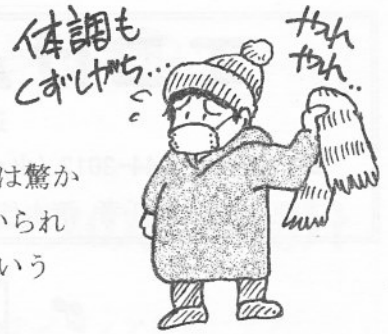 体調も
くずしがち…
やれ
やれ…
は驚か
いられ
いう